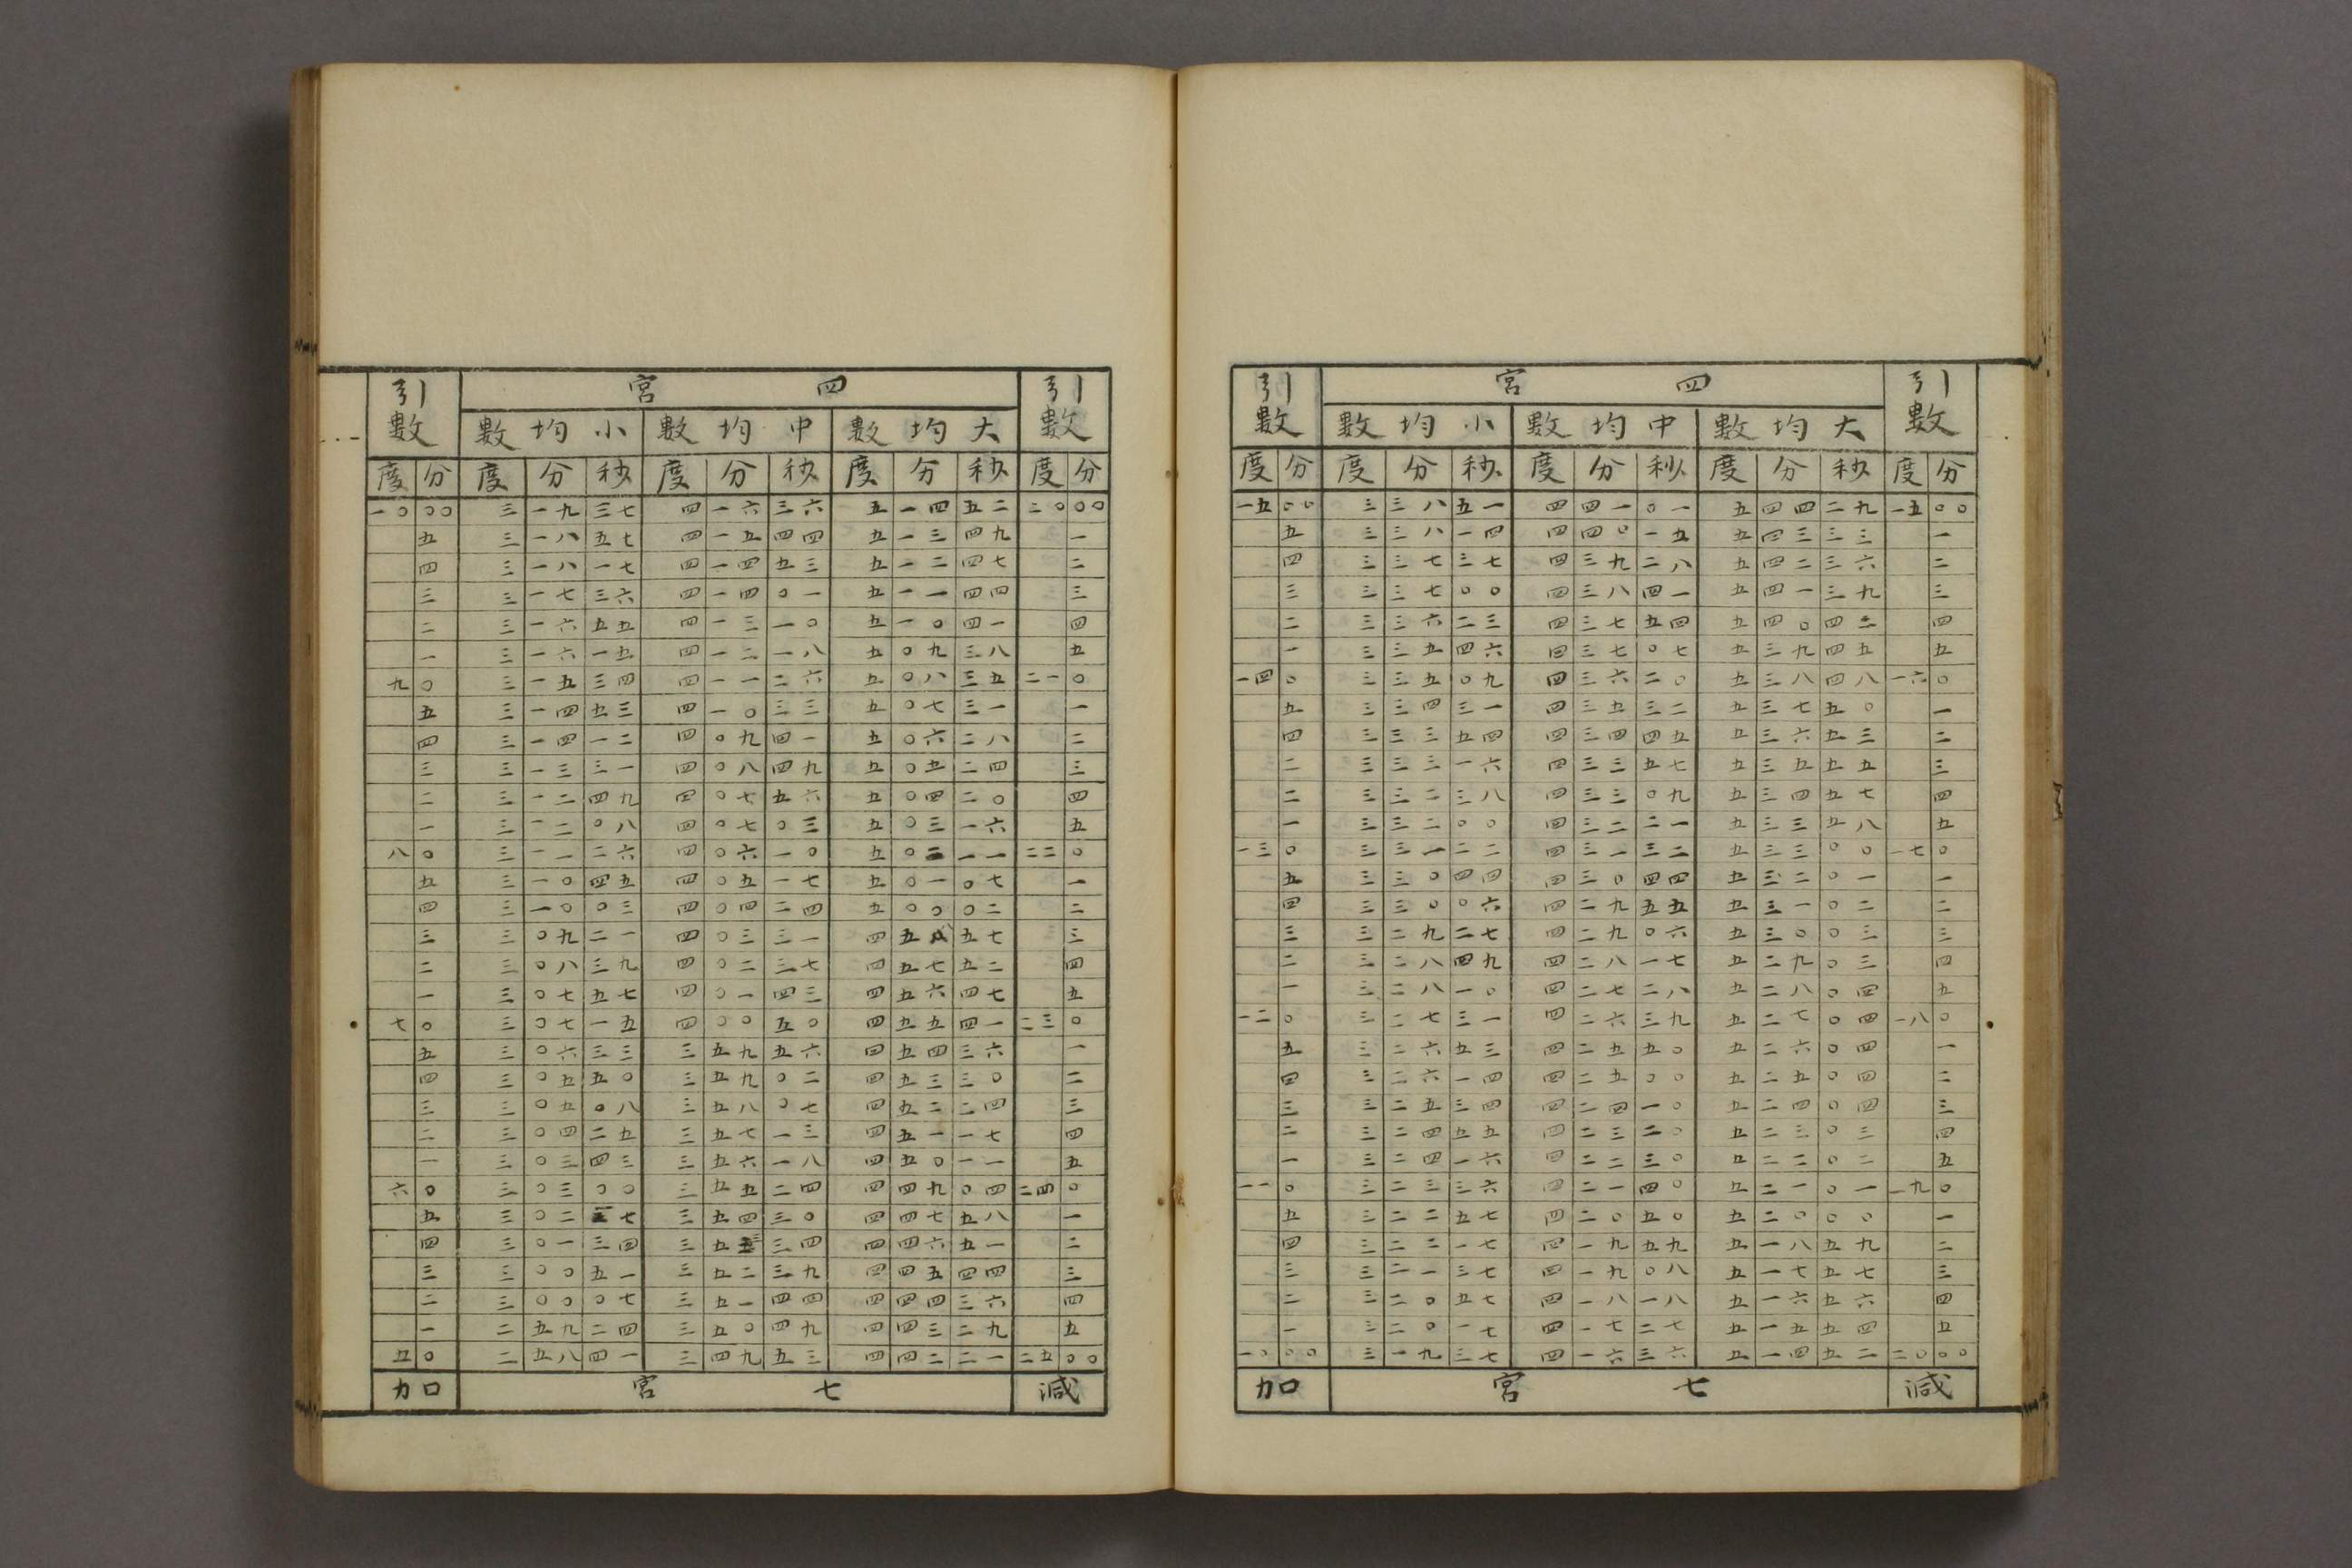 引數 四宮 引數
小均數 中均數 大均數
度 分 度 分 秒 度 分 秒 度 分 秒 度 分
一五 〇〇 三 三八 五一 四 四一 〇一 五 四四 二九 一五 〇〇
五 三 三八 一四 四 四〇 一五 五 四三 三三 一
四 三 三七 三七 四 三九 二八 五 四二 三六 二
三 三 三七 〇〇 四 三八 四一 五 四一 三九 三
二 三 三六 二三 四 三七 五四 五 四〇 四二 四
一 三 三五 四六 四 三七 〇七 五 三九 四五 五
一四 〇 三 三五 〇九 四 三六 二〇 五 三八 四八 一六 〇
五 三 三四 三一 四 三五 三二 五 三七 五〇 一
四 三 三三 五四 四 三四 四五 五 三六 五三 二
三 三 三三 一六 四 三三 五七 五 三五 五五 三
二 三 三二 三八 四 三三 〇九 五 三四 五七 四
一 三 三二 〇〇 四 三二 二一 五 三三 五八 五
一三 〇 三 三一 二二 四 三一 三二 五 三三 〇〇 一七 〇
五 三 三〇 四四 四 三〇 四四 五 三二 〇一 一
四 三 三〇 〇六 四 二九 五五 五 三一 〇二 二
三 三 二九 二七 四 二九 〇六 五 三〇 〇三 三
二 三 二八 四九 四 二八 一七 五 二九 〇三 四
一 三 二八 一〇 四 二七 二八 五 二八 〇四 五
一二 〇 三 二七 三一 四 二六 三九 五 二七 〇四 一八 〇
五 三 二六 五三 四 二五 五〇 五 二六 〇四 一
四 三 二六 一四 四 二五 〇〇 五 二五 〇四 二
三 三 二五 三四 四 二四 一〇 五 二四 〇四 三
二 三 二四 五五 四 二三 二〇 五 二三 〇三 四
一 三 二四 一六 四 二二 三〇 五 二二 〇二 五
一一 〇 三 二三 三六 四 二一 四〇 五 二一 〇一 一九 〇
五 三 二二 五七 四 二〇 五〇 五 二〇 〇〇 一
四 三 二二 一七 四 一九 五九 五 一八 五九 二
三 三 二一 三七 四 一九 〇八 五 一七 五七 三
二 三 二〇 五七 四 一八 一八 五 一六 五六 四
一 三 二〇 一七 四 一七 二七 五 一五 五四 五
一〇 〇〇 三 一九 三七 四 一六 三六 五 一四 五二 二〇 〇〇
加 七宮 減
引數 四宮 引數
小均數 中均數 大均數
度 分 度 分 秒 度 分 秒 度 分 秒 度 分
一〇 〇〇 三 一九 三七 四 一六 三六 五 一四 五二 二〇 〇〇
五 三 一八 五七 四 一五 四四 五 一三 四九 一
四 三 一八 一七 四 一四 五三 五 一二 四七 二
三 三 一七 三六 四 一四 〇一 五 一一 四四 三
二 三 一六 五五 四 一三 一〇 五 一〇 四一 四
一 三 一六 一五 四 一二 一八 五 〇九 三八 五
九 〇 三 一五 三四 四 一一 二六 五 〇八 三五 二一 〇
五 三 一四 五三 四 一〇 三三 五 〇七 三一 一
四 三 一四 一二 四 〇九 四一 五 〇六 二八 二
三 三 一三 三一 四 〇八 四九 五 〇五 二四 三
二 三 一二 四九 四 〇七 五六 五 〇四 二〇 四
一 三 一二 〇八 四 〇七 〇三 五 〇三 一六 五
八 〇 三 一一 二六 四 〇六 一〇 五 〇二 一一 二二 〇
五 三 一〇 四五 四 〇五 一七 五 〇一 〇七 一
四 三 一〇 〇三 四 〇四 二四 五 〇〇 〇二 二
三 三 〇九 二一 四 〇三 三一 四 五八 五七 三
二 三 〇八 三九 四 〇二 三七 四 五七 五二 四
一 三 〇七 五七 四 〇一 四三 四 五六 四七 五
七 〇 三 〇七 一五 四 〇〇 五〇 四 五五 四一 二三 〇
五 三 〇六 三三 三 五九 五六 四 五四 三六 一
四 三 〇五 五〇 三 五九 〇二 四 五三 三〇 二
三 三 〇五 〇八 三 五八 〇七 四 五二 二四 三
二 三 〇四 二五 三 五七 一三 四 五一 一七 四
一 三 〇三 四三 三 五六 一八 四 五〇 一一 五
六 〇 三 〇三 〇〇 三 五五 二四 四 四九 〇四 二四 〇
五 三 〇二 七 三 五四 三〇 四 四七 五八 一
四 三 〇一 三四 三 五三 三四 四 四六 五一 二
三 三 〇〇 五一 三 五二 三九 四 四五 四四 三
二 三 〇〇 〇七 三 五一 四四 四 四四 三六 四
一 二 五九 二四 三 五〇 四九 四 四三 二九 五
五 〇 二 五八 四一 三 四九 五三 四 四二 二一 二五 〇〇
加 七宮 減